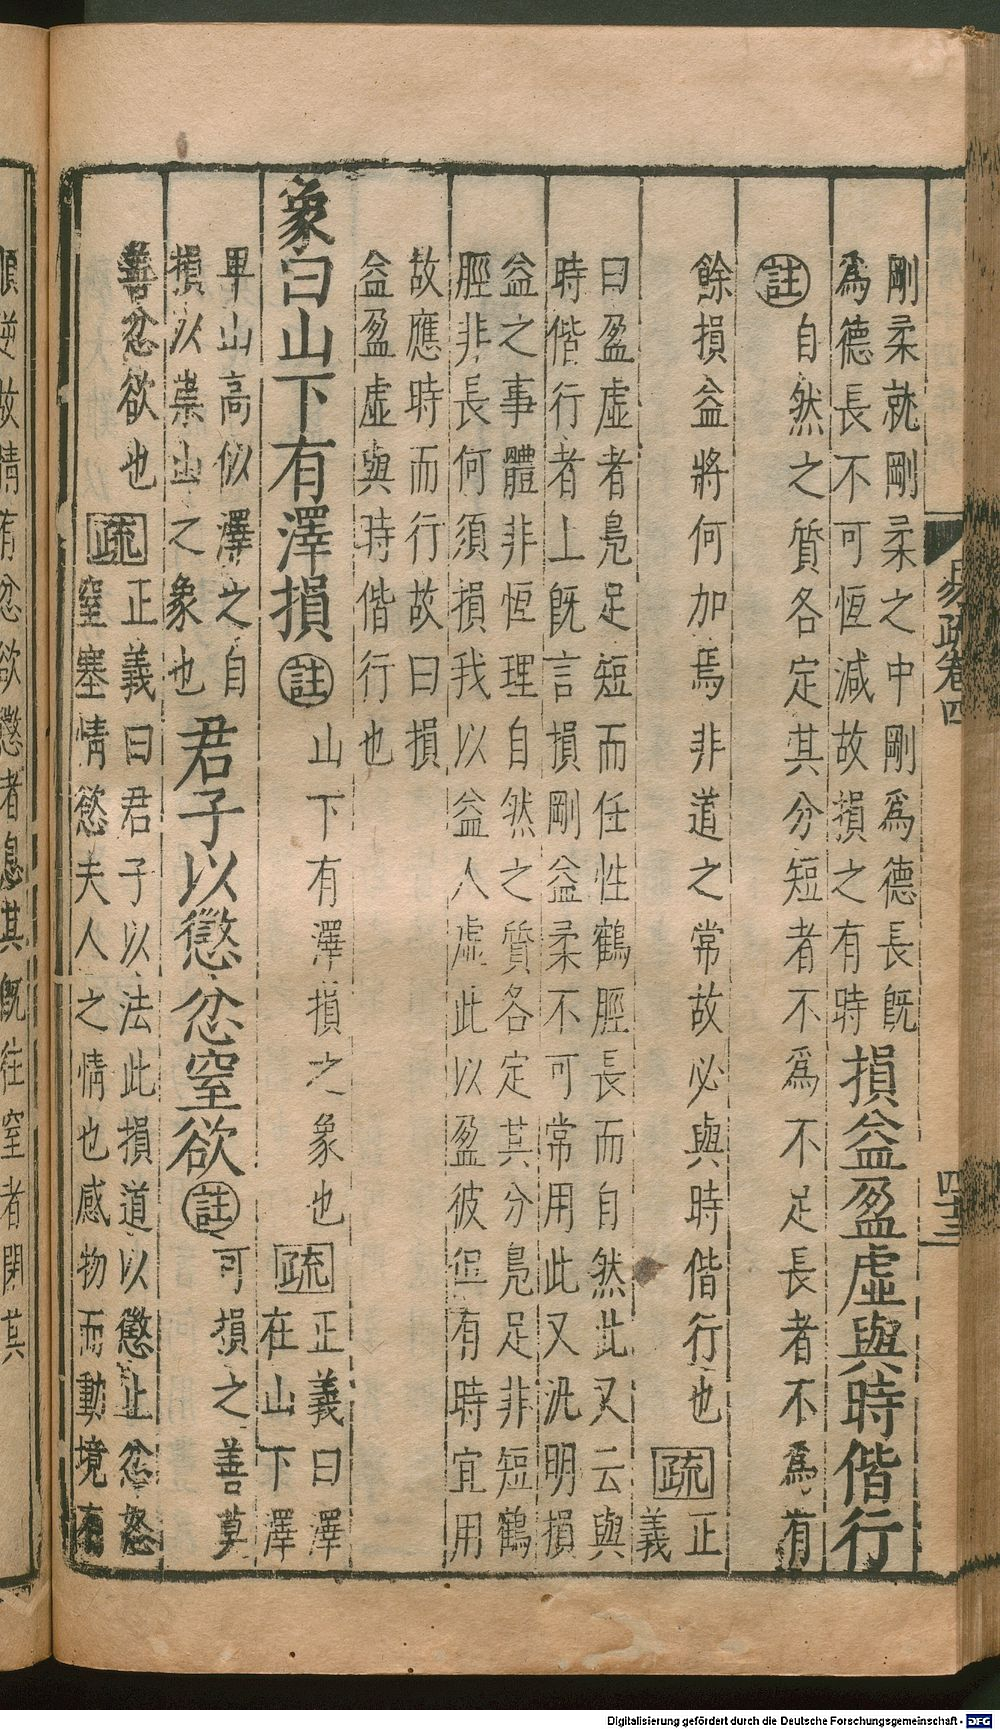 易疏卷四
四十三
剛柔就剛柔之中剛剛爲德長既
爲德長不可恆減故損之有時
損益盈虛與時偕行
註
自然之質各定其分短者不爲不足長者不爲有
餘損益將何加焉非道之常故必與時偕行也
疏
正
義
曰盈虛者鳧足短而任性鶴脛長而自然此又云與
時偕行者上既言損剛益柔不可常用此又汎明損
益之事體非恆理自然之質各定其分鳧足非短鶴
脛非長何須損我以益人虛此以盈彼但有時宜用
故應時而行故曰損
益盈虛與時偕行也
象曰山下有澤損
註
山下有澤損之象也
疏
正義曰澤
在山下澤
卑山高似澤之自
損以崇山之象也
君子以懲忿窒欲
註
可損之善莫
善忿欲也
疏
正義曰君子以法此損道以懲止忿怒
窒塞情慾夫人之情也感物而動境有
順逆故情有忿欲懲者息其既往窒者閉其
Digitalisierung gefördert durch die Deutsche Forschungsgemeinschaft - DFG